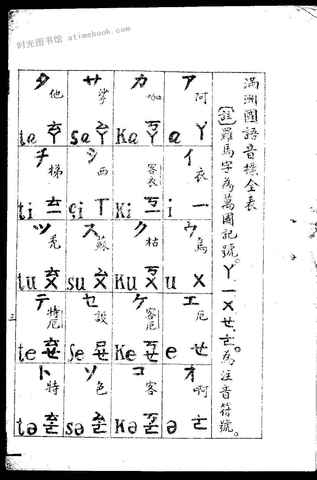 时光图书馆 atimebook.com
满洲國語音標全表
[註]羅馬字為萬國記號。ㄚ ㄧ ㄨ ㄝ,ㄜ。為注音符號。
ア 阿 a ㄚ
イ 衣 i ㄧ
ウ 烏 u ㄨ
エ 厄 e ㄝ
オ 啊 ə ㄜ
カ 咖 Ka ㄎㄚ
キ 客衣 Ki ㄎㄧ
ク 枯 Ku ㄎㄨ
ケ 客厄 Ke ㄎㄝ
コ 客 Kə ㄎㄜ
サ sa ㄙㄚ
シ 西 ㄒ
ス 蘇 su ㄙㄨ
セ 設 se ㄙㄝ
ソ 色 sə ㄙㄜ
タ 他 ta ㄊㄚ
チ 梯 ti ㄊㄧ
ツ 禿 tu ㄊㄨ
テ 特厄 te ㄊㄝ
ト 特 tə ㄊㄜ
三